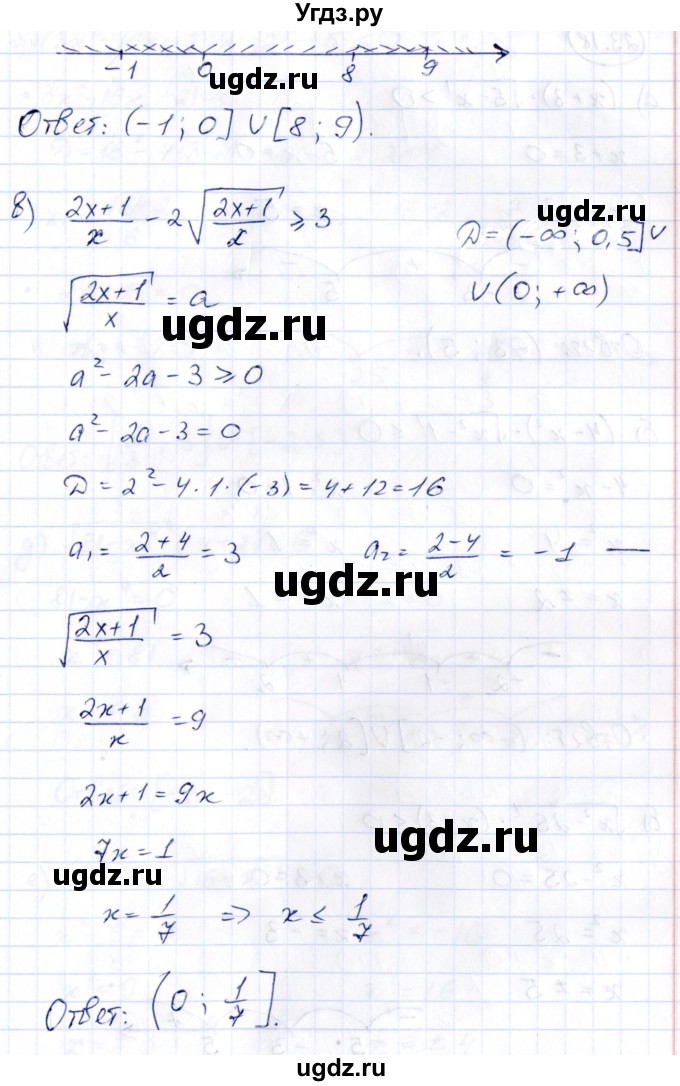 Угдз.ру
-1 0 8 9
ugdz.ru
Ответ: (-1; 0] ∪ [8; 9).
ugdz.ru
8) (2x+1)/x - 2√((2x+1)/x) ≥ 3
D = (-∞; 0,5] ∪
√((2x+1)/x) = a
∪ (0; +∞)
ugdz.ru
a² - 2a - 3 ≥ 0
ugdz.ru
a² - 2a - 3 = 0
D = 2² - 4 · 1 · (-3) = 4 + 12 = 16
a₁ = (2+4)/2 = 3 a₂ = (2-4)/2 = -1 —
ugdz.ru
√((2x+1)/x) = 3
ugdz.ru
(2x+1)/x = 9
2x+1 = 9x
ugdz.ru
7x = 1
ugdz.ru
x = 1/7 ⇒ x ≤ 1/7
Ответ: (0; 1/7].
ugdz.ru
ugdz.ru